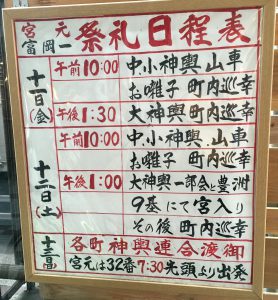 宮元
富岡一
祭礼日程表
十一日(金)
午前10:00 中小神輿 山車
お囃子 町内巡幸
午後1:30 大神輿 町内巡幸
十二日(土)
午前10:00 中.小神輿.山車
お囃子 町内巡幸
午後1:00 大神輿一部会と豊洲
9基にて宮入り
その後 町内巡幸
各町神輿連合渡御
宮元は32番7:30先頭より出発